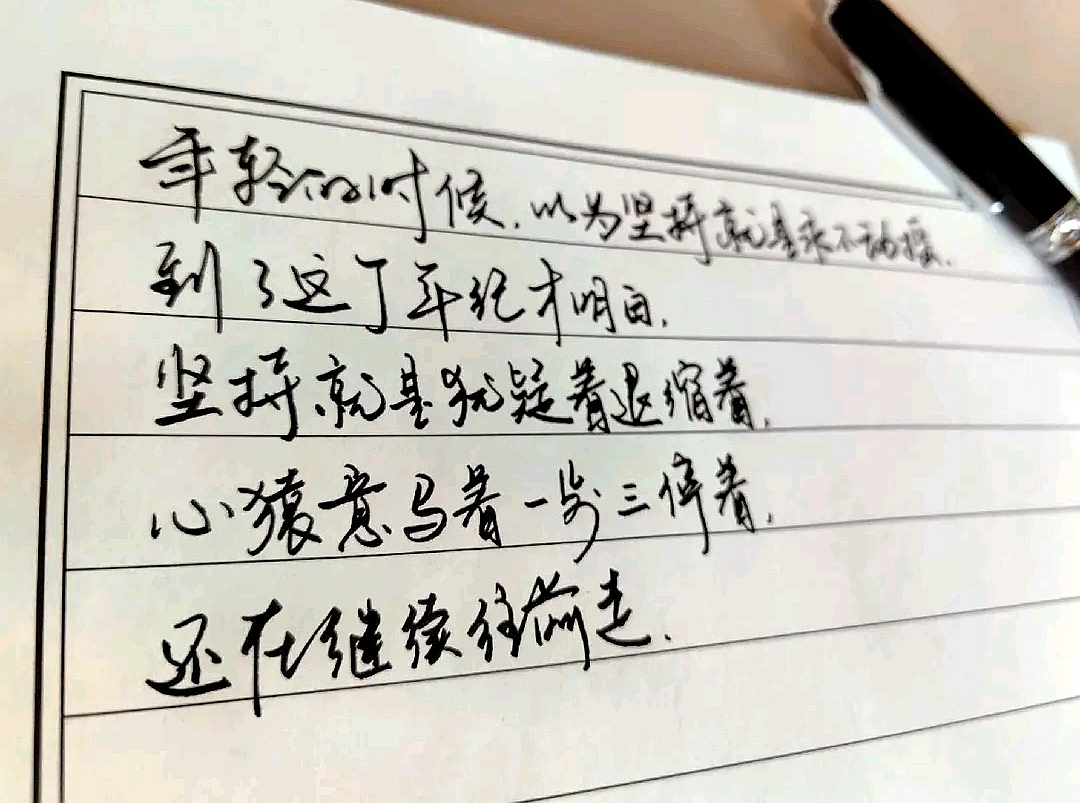 年轻的时候，以为坚持就是永不动摇，
到了这个年纪才明白，
坚持就是犹疑着退缩着，
心猿意马着一步三停着，
还在继续往前走。